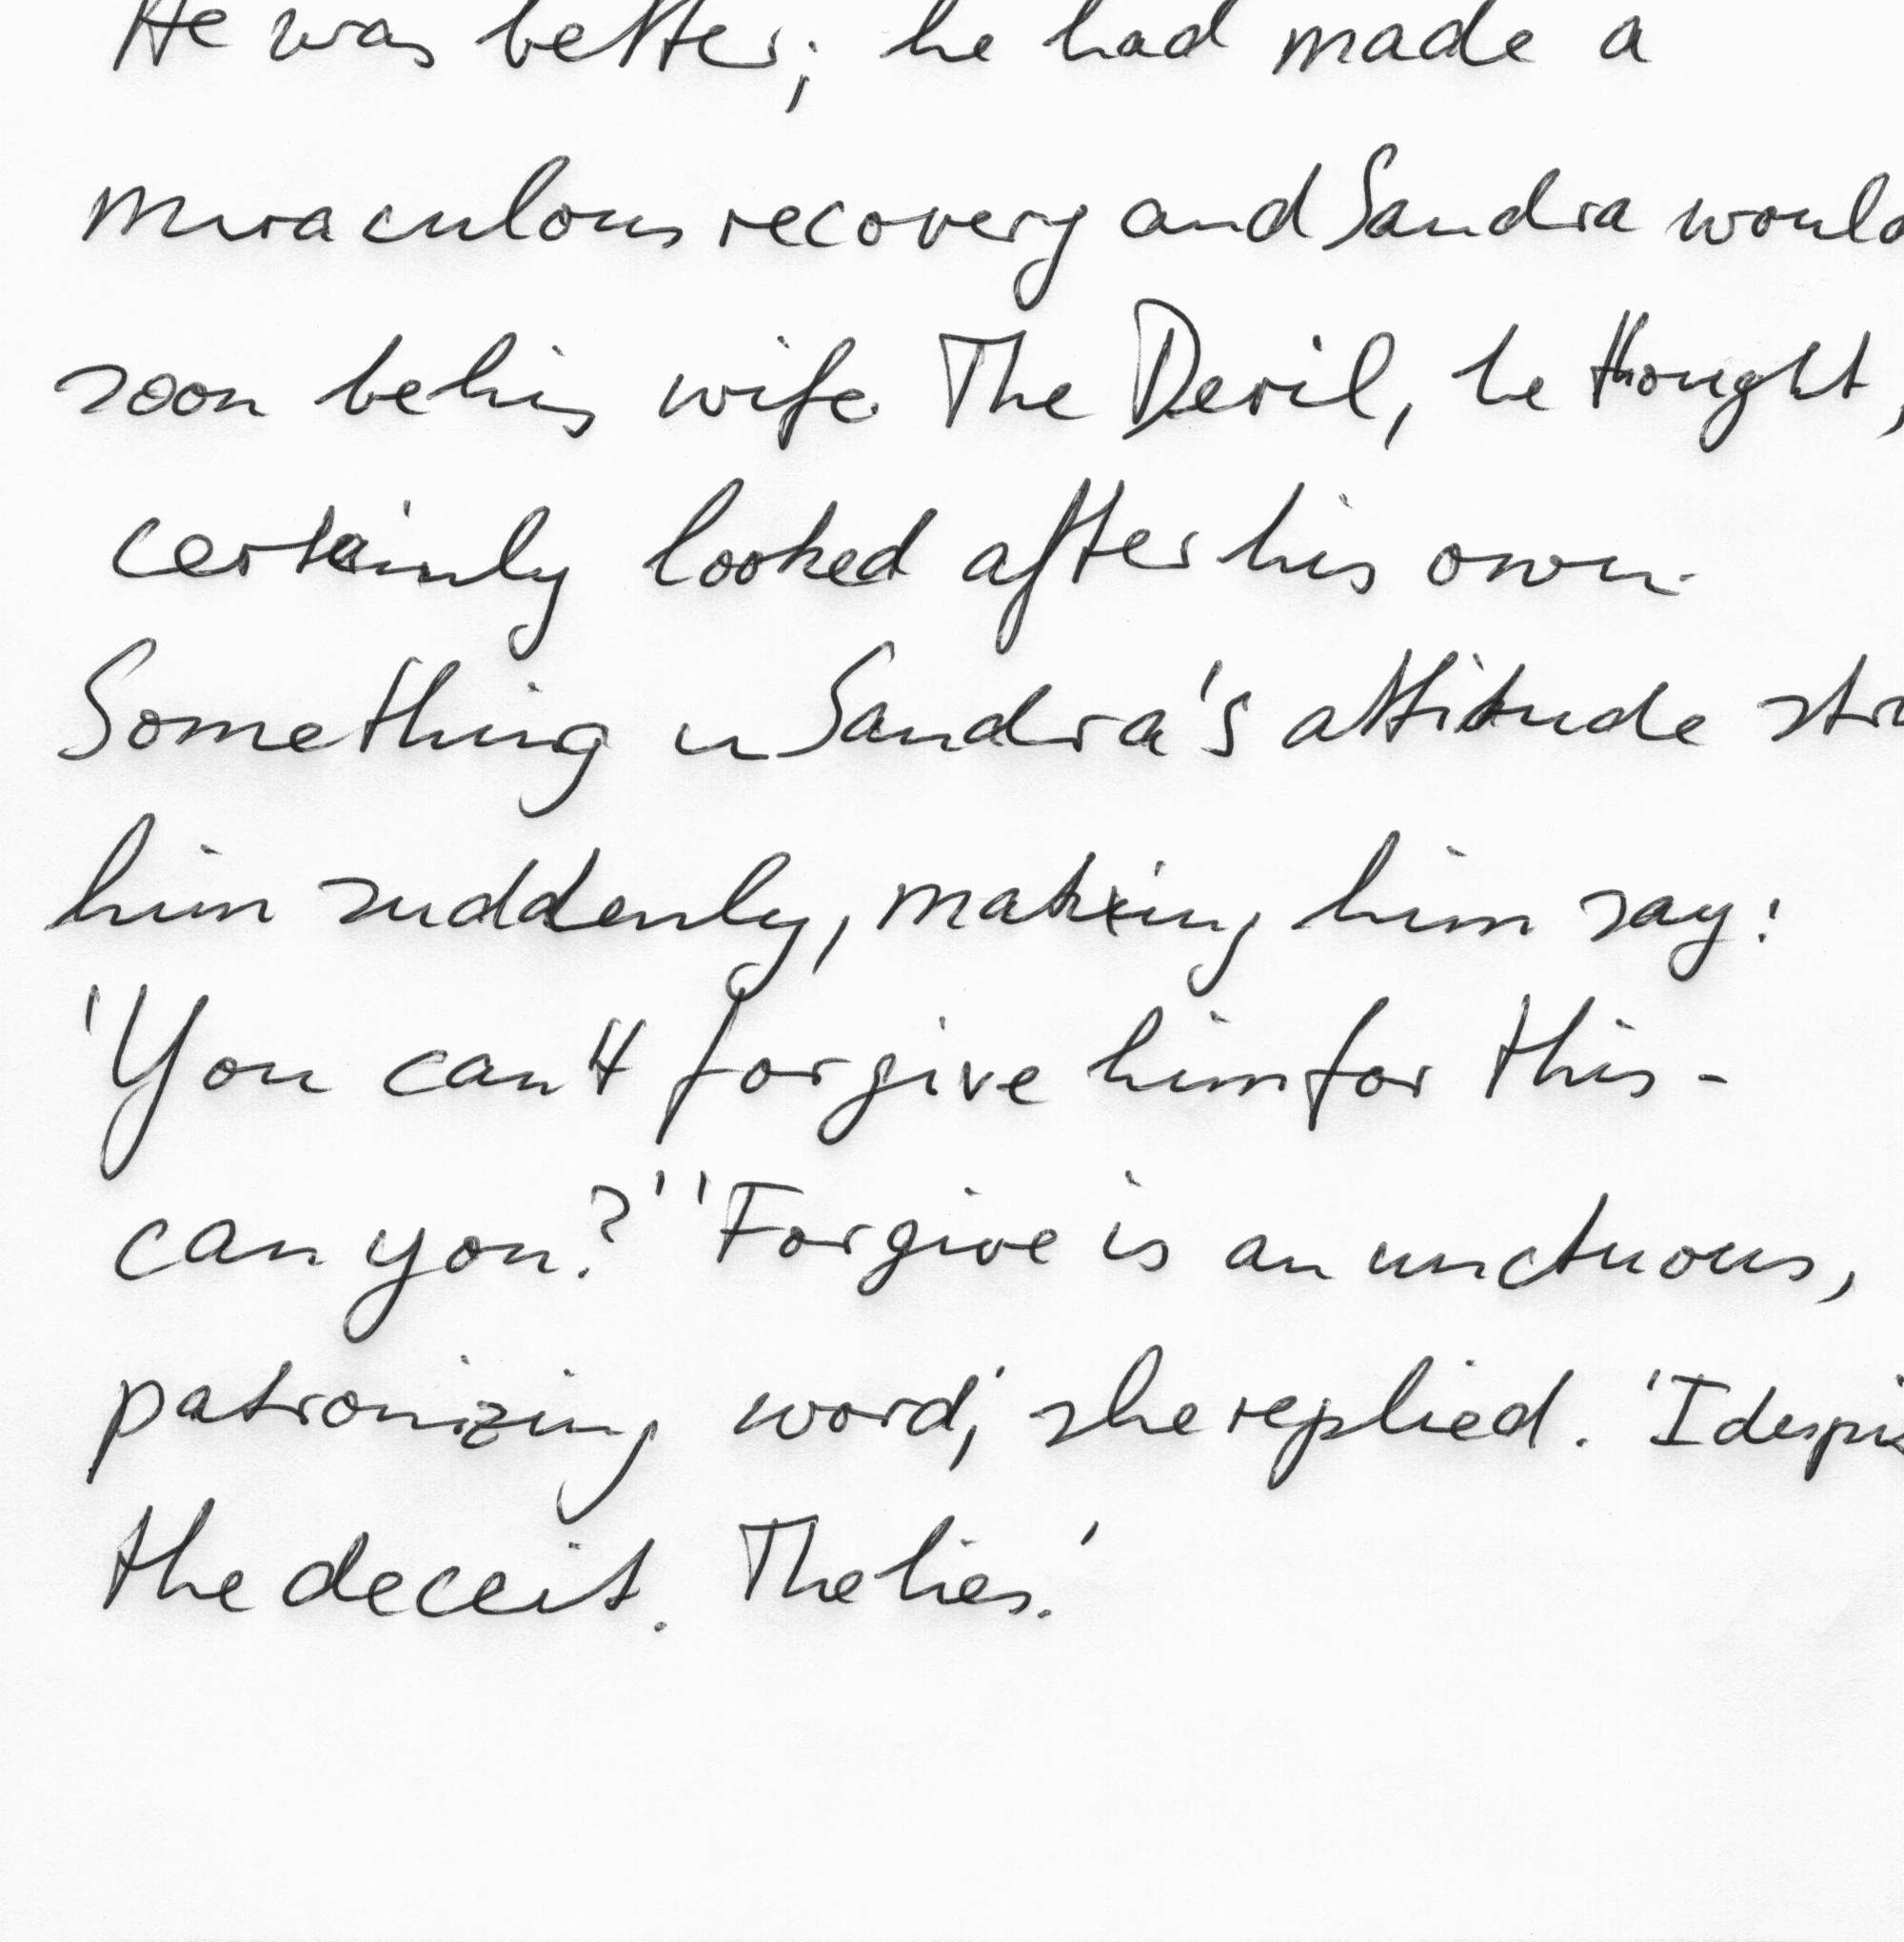 He was better; he had made a
miraculous recovery and Sandra would
soon be his wife. The Devil, he thought,
certainly looked after his own.
Something in Sandra's attitude
him suddenly, making him say:
'You can't forgive him for this -
can you?' 'Forgive is an unctuous,
patronizing word,' she replied. 'I
the deceit. The lies.'